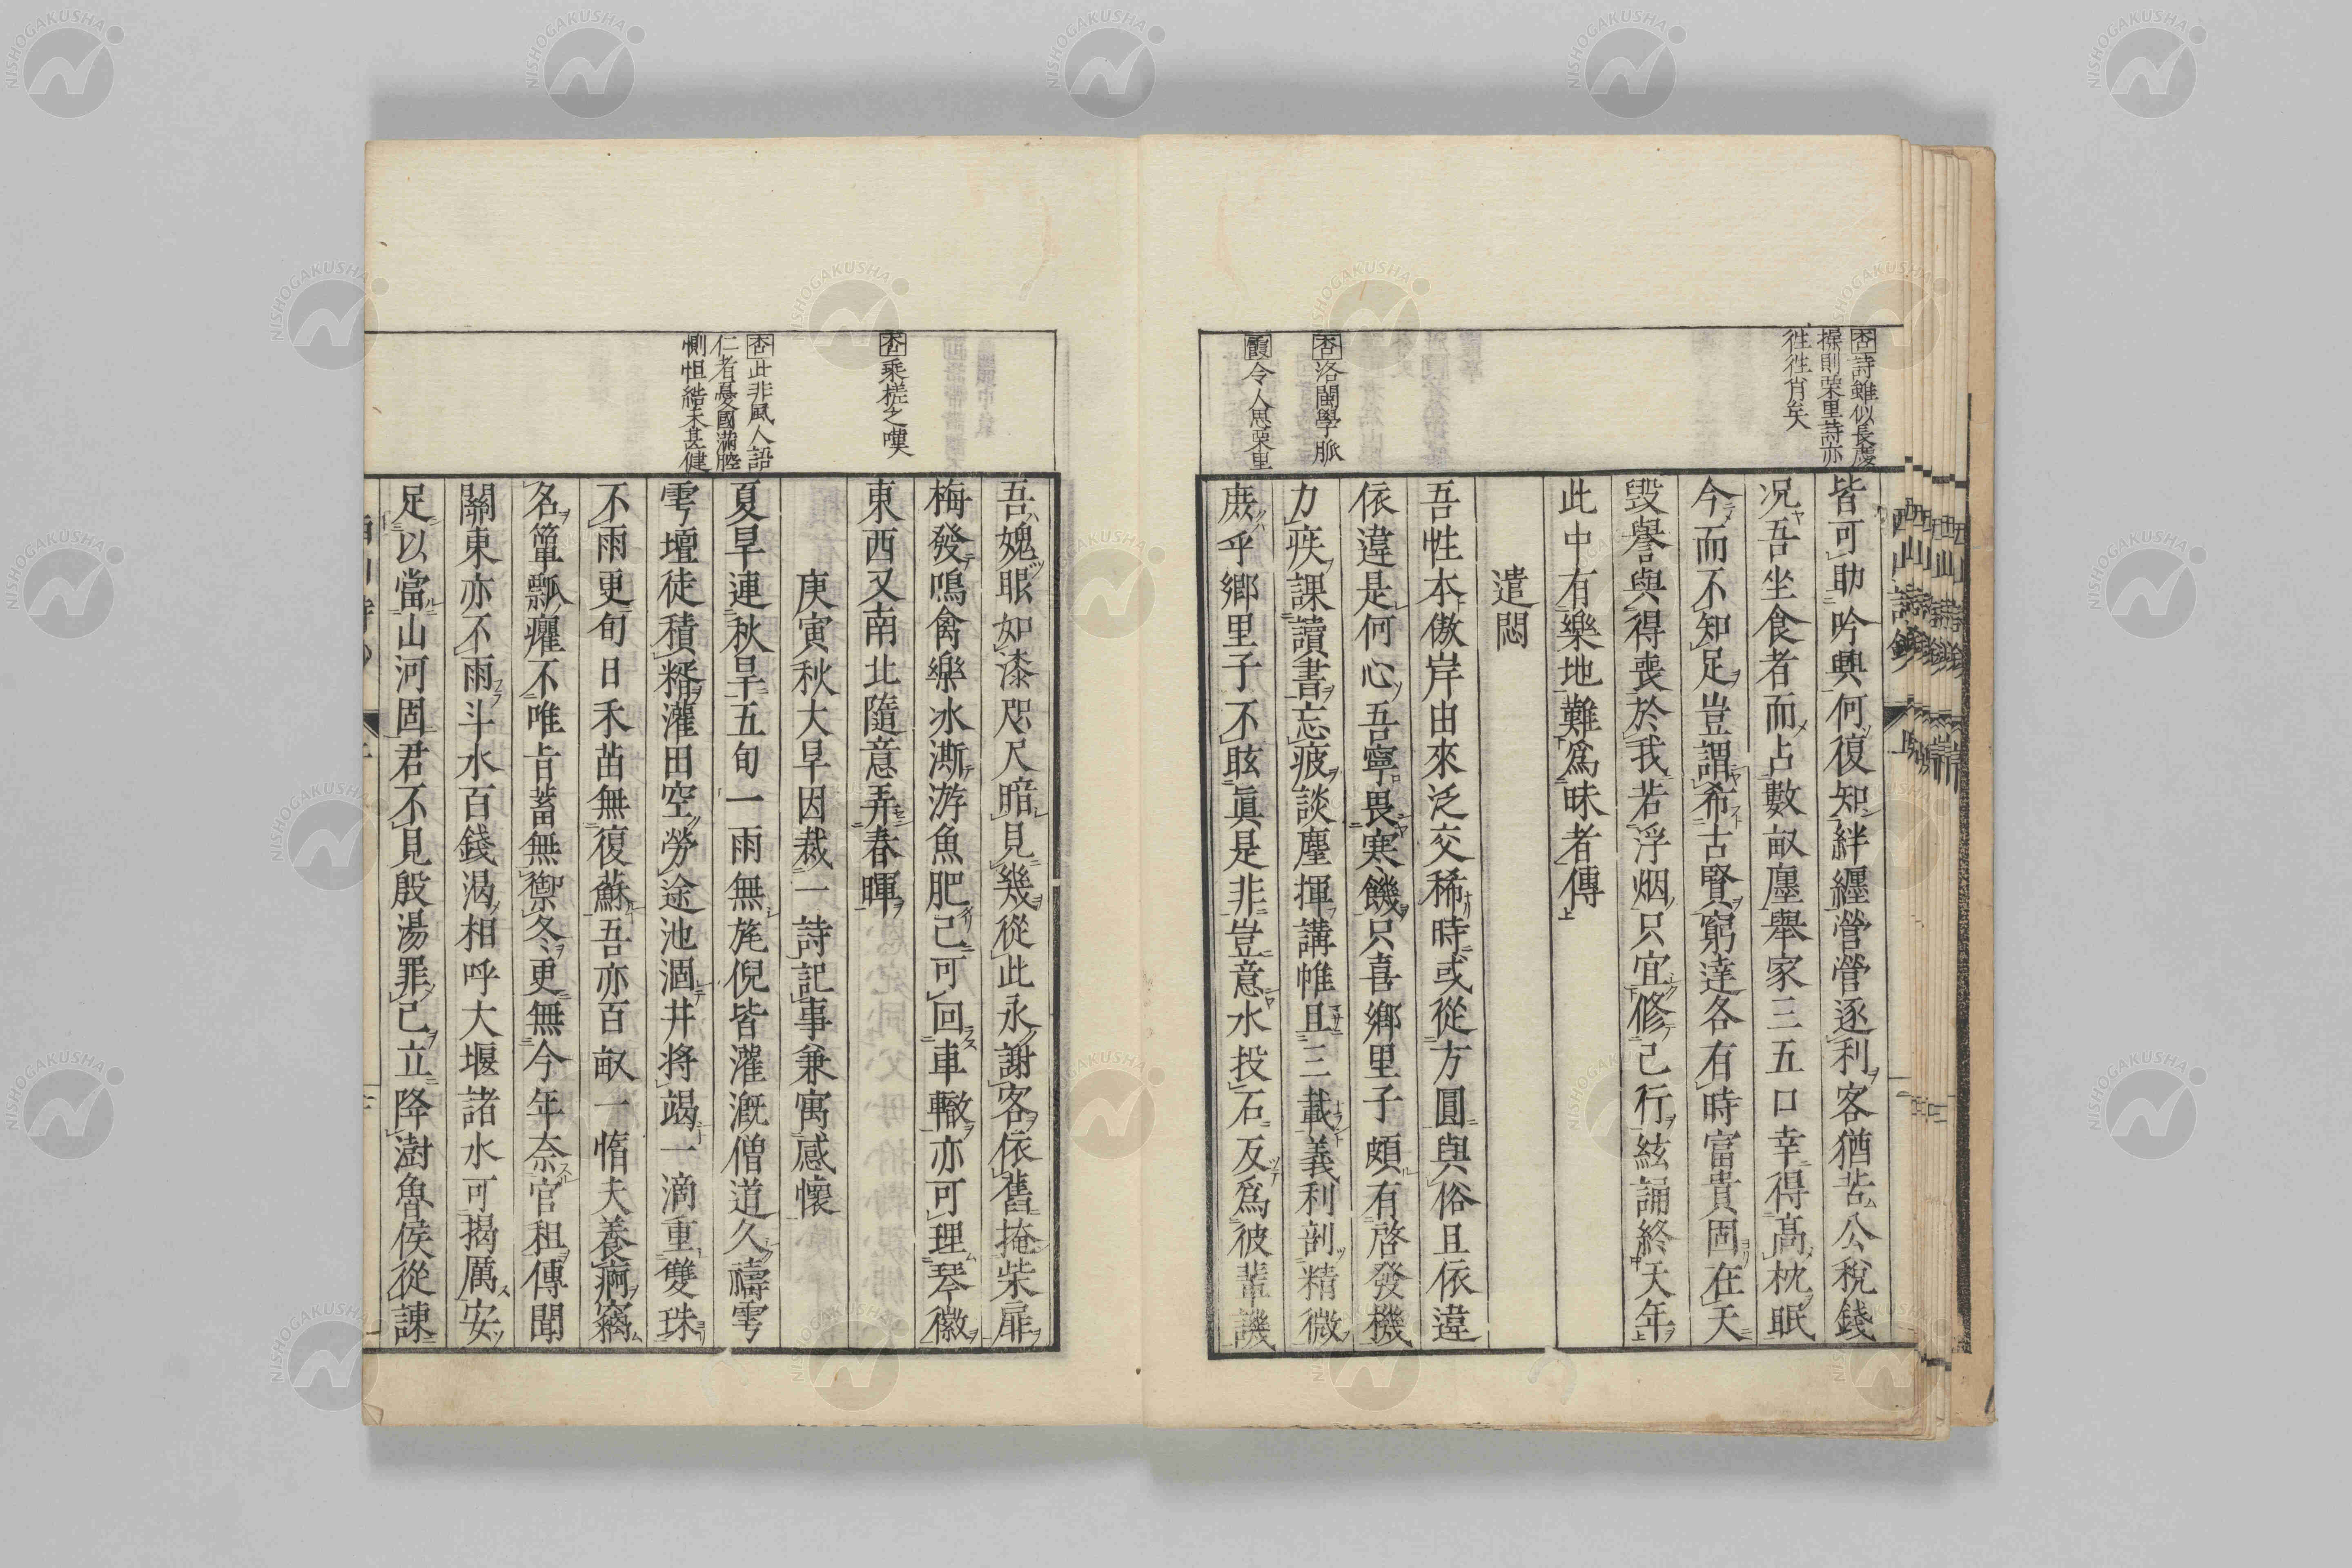 皆可助吟興何復知絆纒營營逐利客猶苦公稅錢
况吾坐食者而占數畝廛舉家三五口幸得高枕眠
今而不知足豈謂希古賢窮達各有時富貴固在天
毀譽與得喪於我若浮烟只宜修己行絃誦終天年
此中有樂地難爲昧者傳
遣悶
吾性本傲岸由來泛交稀時或從方圓與俗且依違
依違是何心吾寧畏寒饑只喜鄉里子頗有啓發機
力疾課讀書忘疲談麈揮講帷且三載義利剖精微
庶乎鄉里子不眩眞是非豈意水投石反爲彼輩譏
杏詩雖似長慶
操則栗里詩亦
徃徃肖矣
杏洛閩學脈
霞令人思栗里
吾媿眼如漆咫尺暗見幾從此永謝客依舊掩柴扉
梅發鳴禽樂冰澌游魚肥己可回車轍亦可理琴徽
東西又南北隨意弄春暉
庚寅秋大旱因裁一詩記事兼寓感懷
夏旱連秋旱五旬一雨無旄倪皆灌漑僧道久禱雩
雩壇徒積糈灌田空勞途池涸井将竭一滴重雙珠
不雨更旬日禾苗無復蘇吾亦百畝一惰夫養痾竊
名簞瓢癯不唯㫖蓄無禦冬更無今年奈官租傳聞
關東亦不雨斗水百錢渴相呼大堰諸水可揭厲安
足以當山河固君不見殷湯罪己立降澍魯侯從諫
杏乘槎之嘆
杏此非風人語
仁者憂國滿腔
惻怛結末甚健
西山詩鈔
NISHOGAKUSHA